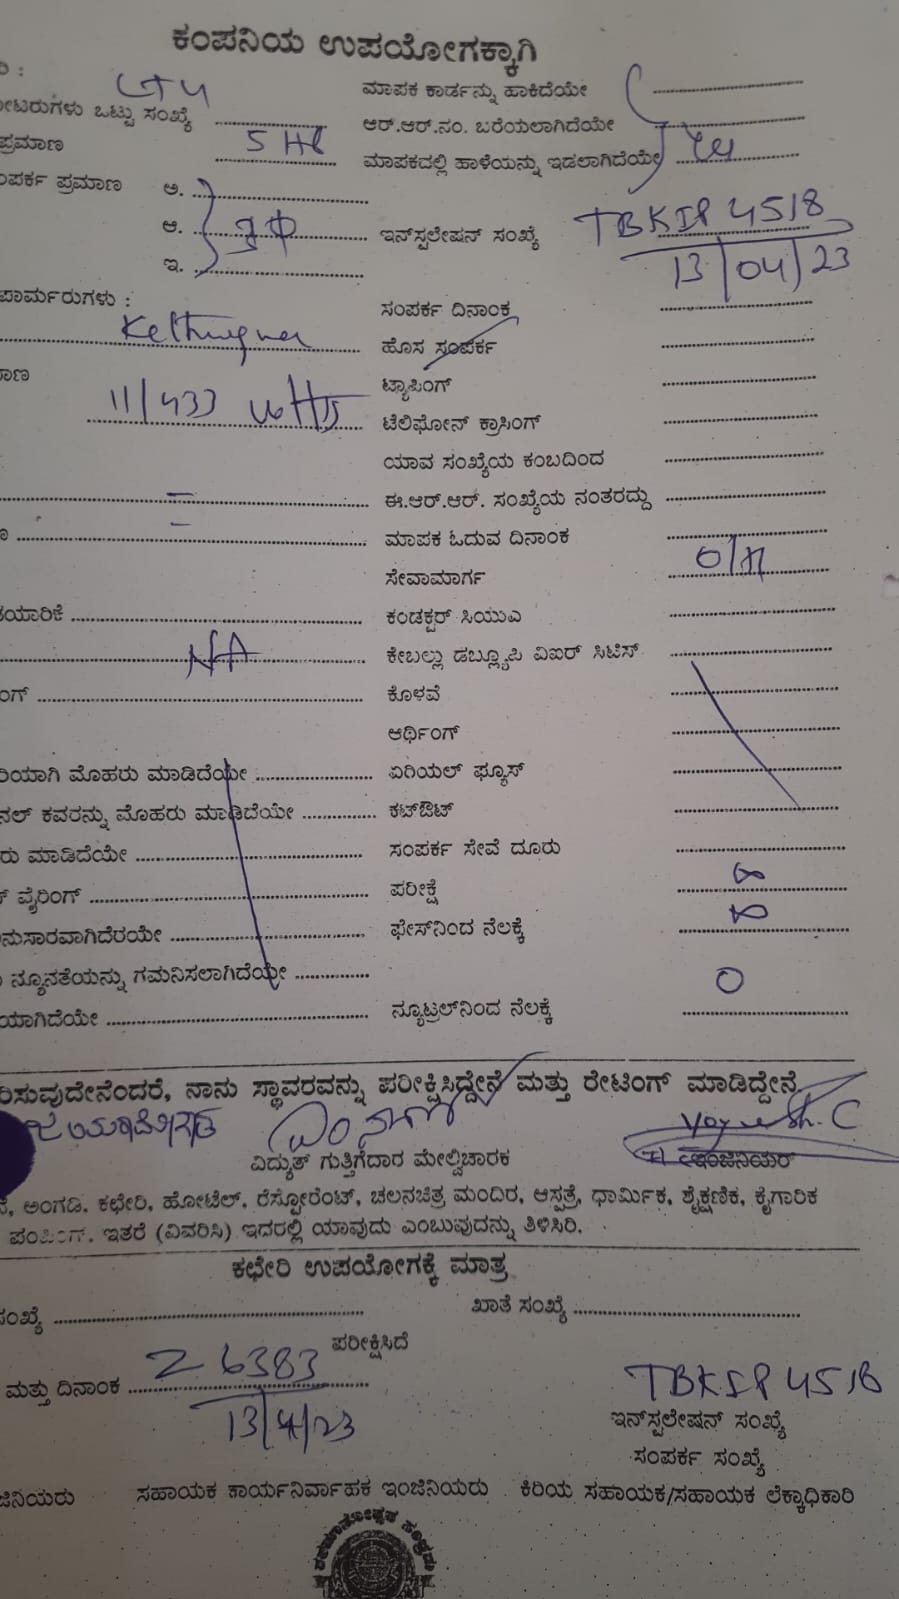 ಕಂಪನಿಯ ಉಪಯೋಗಕ್ಕಾಗಿ
ರಿ :
ಮಾಪಕ ಕಾರ್ಡನ್ನು ಹಾಕಿದೆಯೇ
ಒಟ್ಟು ಸಂಖ್ಯೆ
ಆರ್.ಆರ್.ನಂ. ಬರೆಯಲಾಗಿದೆಯೇ
ಪ್ರಮಾಣ
ಮಾಪಕದಲ್ಲಿ ಹಾಳೆಯನ್ನು ಇಡಲಾಗಿದೆಯೇ
ಂಪರ್ಕ ಪ್ರಮಾಣ ಅ.
ಆ. ಇನ್‌ಸ್ಟಲೇಷನ್ ಸಂಖ್ಯೆ TBKIP 4518
ಇ. 13/04/23
ಪಾರ್ಮರುಗಳು :
ಸಂಪರ್ಕ ದಿನಾಂಕ
ಹೊಸ ಸಂಪರ್ಕ
ಮಾಣ
ಟ್ಯಾಪಿಂಗ್
11/433 ಟೆಲಿಫೋನ್ ಕ್ರಾಸಿಂಗ್
ಯಾವ ಸಂಖ್ಯೆಯ ಕಂಬದಿಂದ
ಈ.ಆರ್.ಆರ್. ಸಂಖ್ಯೆಯ ನಂತರದ್ದು
ಮಾಪಕ ಓದುವ ದಿನಾಂಕ
ಸೇವಾಮಾರ್ಗ O/H
ತಯಾರಿಕೆ ಕಂಡಕ್ಟರ್ ಸಿಯುಎ
NA ಕೇಬಲ್ಲು ಡಬ್ಲ್ಯೂಪಿ ವಿಐರ್ ಸಿಟಿಸ್
ಂಗ್ ಕೊಳವೆ
ಆರ್ಥಿಂಗ್
ರಿಯಾಗಿ ಮೊಹರು ಮಾಡಿದೆಯೇ ಏರಿಯಲ್ ಫ್ಯೂಸ್
ನಲ್ ಕವರನ್ನು ಮೊಹರು ಮಾಡಿದೆಯೇ ಕಟ್‌ಔಟ್
ರು ಮಾಡಿದೆಯೇ ಸಂಪರ್ಕ ಸೇವೆ ದೂರು
ವೈರಿಂಗ್ ಪರೀಕ್ಷೆ ∞
ನುಸಾರವಾಗಿದೆರಯೇ ಫೇಸ್‌ನಿಂದ ನೆಲಕ್ಕೆ ∞
ನ್ಯೂನತೆಯನ್ನು ಗಮನಿಸಲಾಗಿದೆಯೇ
ಯಾಗಿದೆಯೇ ನ್ಯೂಟ್ರಲ್‌ನಿಂದ ನೆಲಕ್ಕೆ 0
ರಿಸುವುದೇನೆಂದರೆ, ನಾನು ಸ್ಥಾವರವನ್ನು ಪರೀಕ್ಷಿಸಿದ್ದೇನೆ ಮತ್ತು ರೇಟಿಂಗ್ ಮಾಡಿದ್ದೇನೆ.
ವಿದ್ಯುತ್ ಗುತ್ತಿಗೆದಾರ ಮೇಲ್ವಿಚಾರಕ ಇಂಜಿನಿಯರ್
ಅಂಗಡಿ. ಕಛೇರಿ, ಹೋಟೆಲ್. ರೆಸ್ಟೋರೆಂಟ್, ಚಲನಚಿತ್ರ ಮಂದಿರ, ಆಸ್ಪತ್ರೆ, ಧಾರ್ಮಿಕ, ಶೈಕ್ಷಣಿಕ, ಕೈಗಾರಿಕ
ಪಂಪಿಂಗ್. ಇತರೆ (ವಿವರಿಸಿ) ಇದರಲ್ಲಿ ಯಾವುದು ಎಂಬುವುದನ್ನು ತಿಳಿಸಿರಿ.
ಕಛೇರಿ ಉಪಯೋಗಕ್ಕೆ ಮಾತ್ರ
ಸಂಖ್ಯೆ ಖಾತೆ ಸಂಖ್ಯೆ
ಪರೀಕ್ಷಿಸಿದೆ
ಮತ್ತು ದಿನಾಂಕ 26383 TBKIP 4518
13/4/23 ಇನ್‌ಸ್ಟಲೇಷನ್ ಸಂಖ್ಯೆ
ಸಂಪರ್ಕ ಸಂಖ್ಯೆ
ಜಿನಿಯರು ಸಹಾಯಕ ಕಾರ್ಯನಿರ್ವಾಹಕ ಇಂಜಿನಿಯರು ಕಿರಿಯ ಸಹಾಯಕ/ಸಹಾಯಕ ಲೆಕ್ಕಾಧಿಕಾರಿ